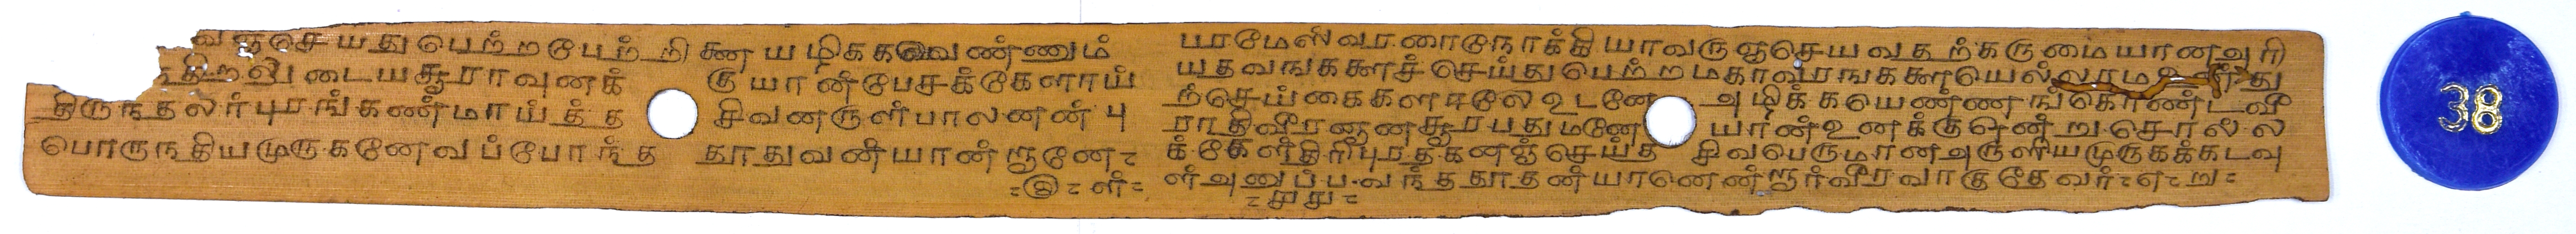 வஞ்செ யது பெற்ற பேற்றி ணை யழிககவெண்ணும்
திறலுடைய சூராவுனக் கு யான் பேசக் கேளாய்
திருந்தலர் புரங்கண்மாய்த்த சிவனருள் பாலனன் பு
பொருந்தியமுருகனேவப் போந்த தூதுவனியான்றானே
பரமேஸ்வரனைநோக்கி யாவருஞ்செயவதற்கருமையானஅரி
யதவங்களைச் செய்து பெற்ற மகாவரங்களையெல்லாம்
ற்செய்கைகளாலே உடனே அழிக்கயெண்ணங்கொண்டவீ
ராதிவீரனானசூரபதுமனே யான்உனக்குஒன்றுசொல்ல
க் கேள் திரிபுரத்கனஞ்செய்த சிவபெருமானஅருளியமுருகக்கடவு
ள்அனுப்பவந்ததூதன்யானென்றார்வீரவாகுதேவர்
38